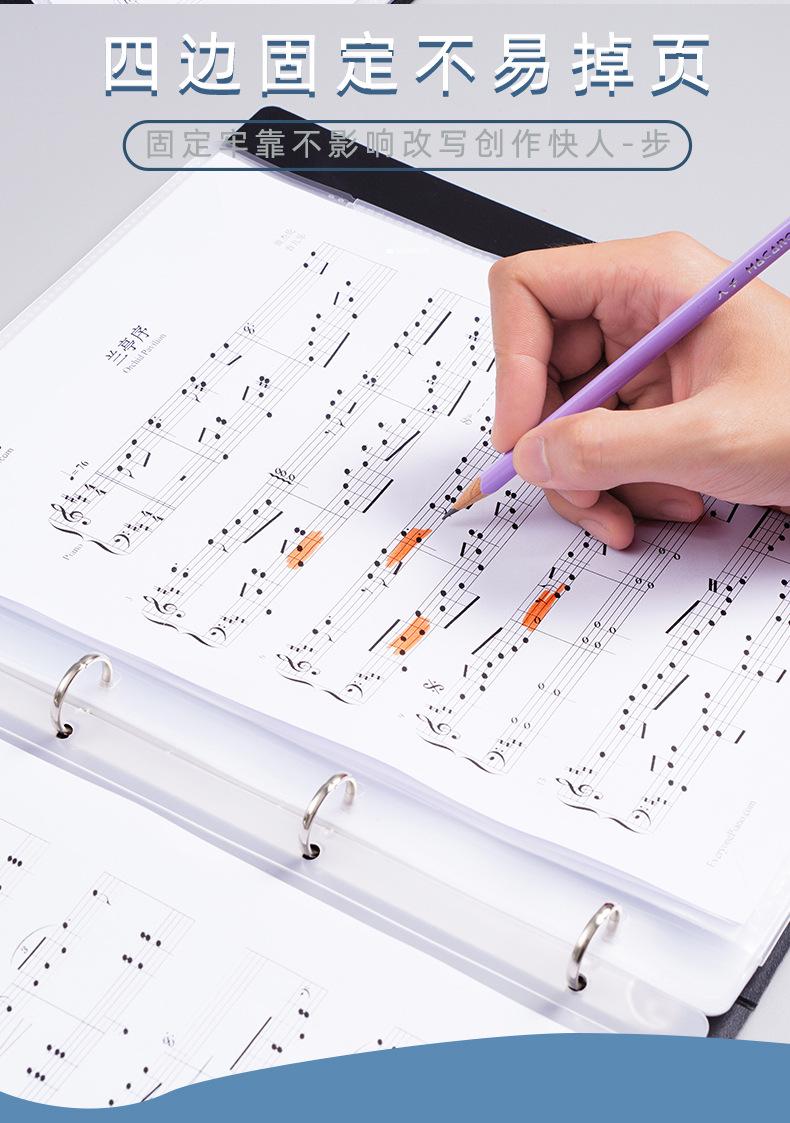 四边固定不易掉页
固定牢靠不影响改写创作快人-步
兰亭序
Orchid Pavilion
♩= 76
Piano
EveryonePiano.com